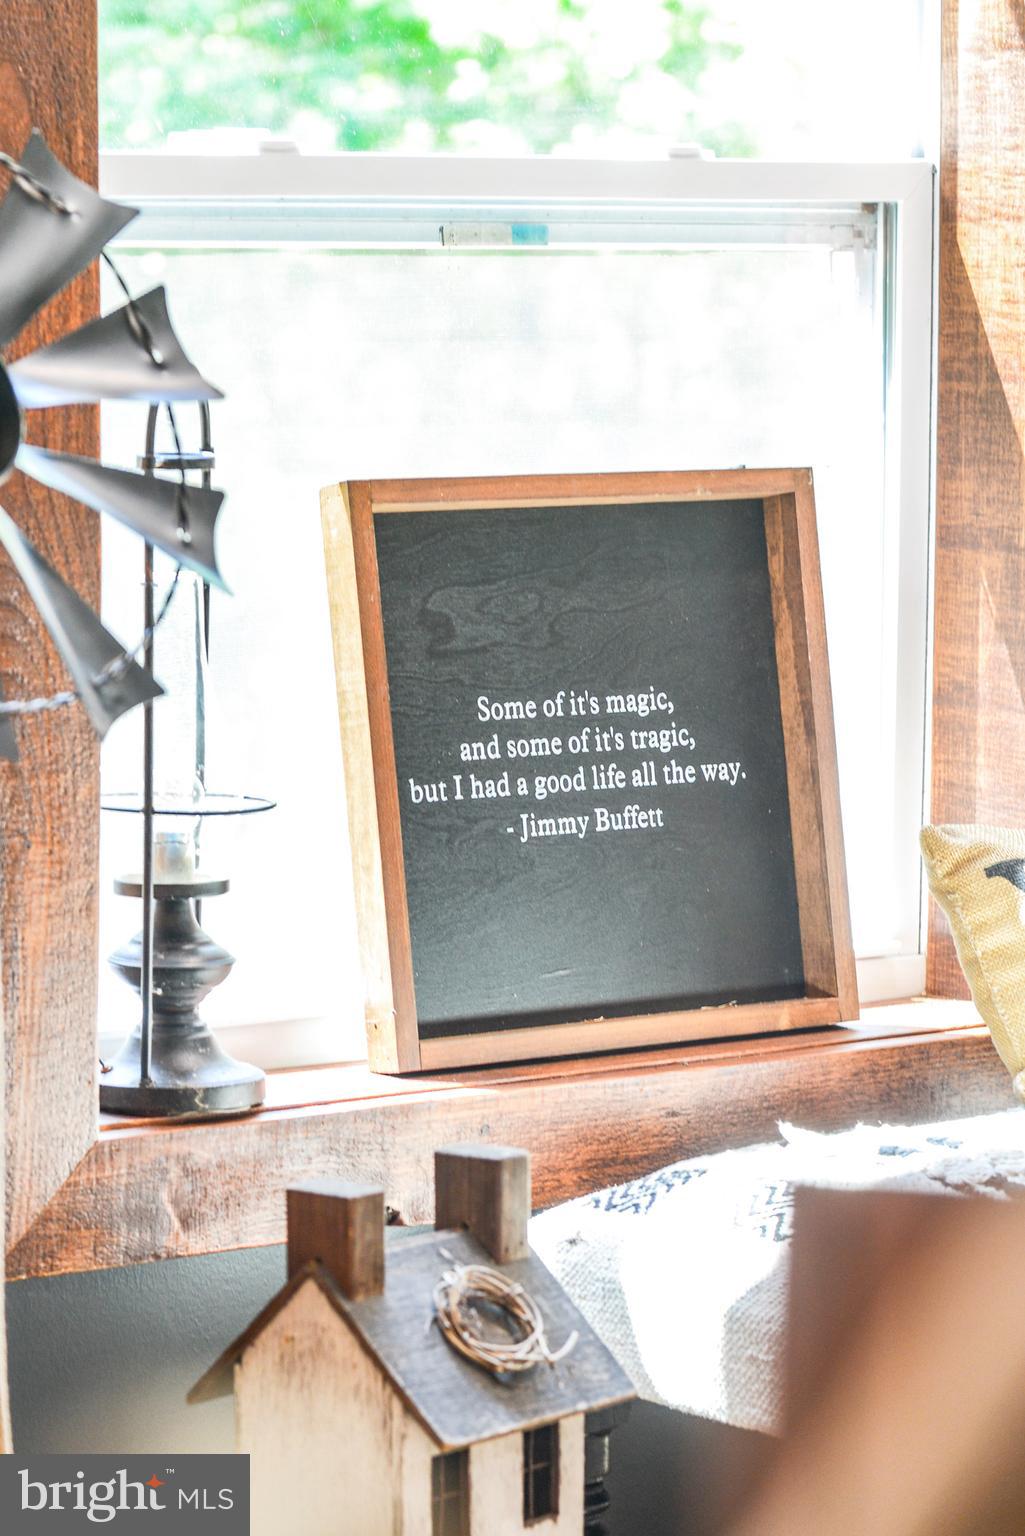 Some of it's magic,
and some of it's tragic,
but I had a good life all the way.
- Jimmy Buffett
bright™ MLS